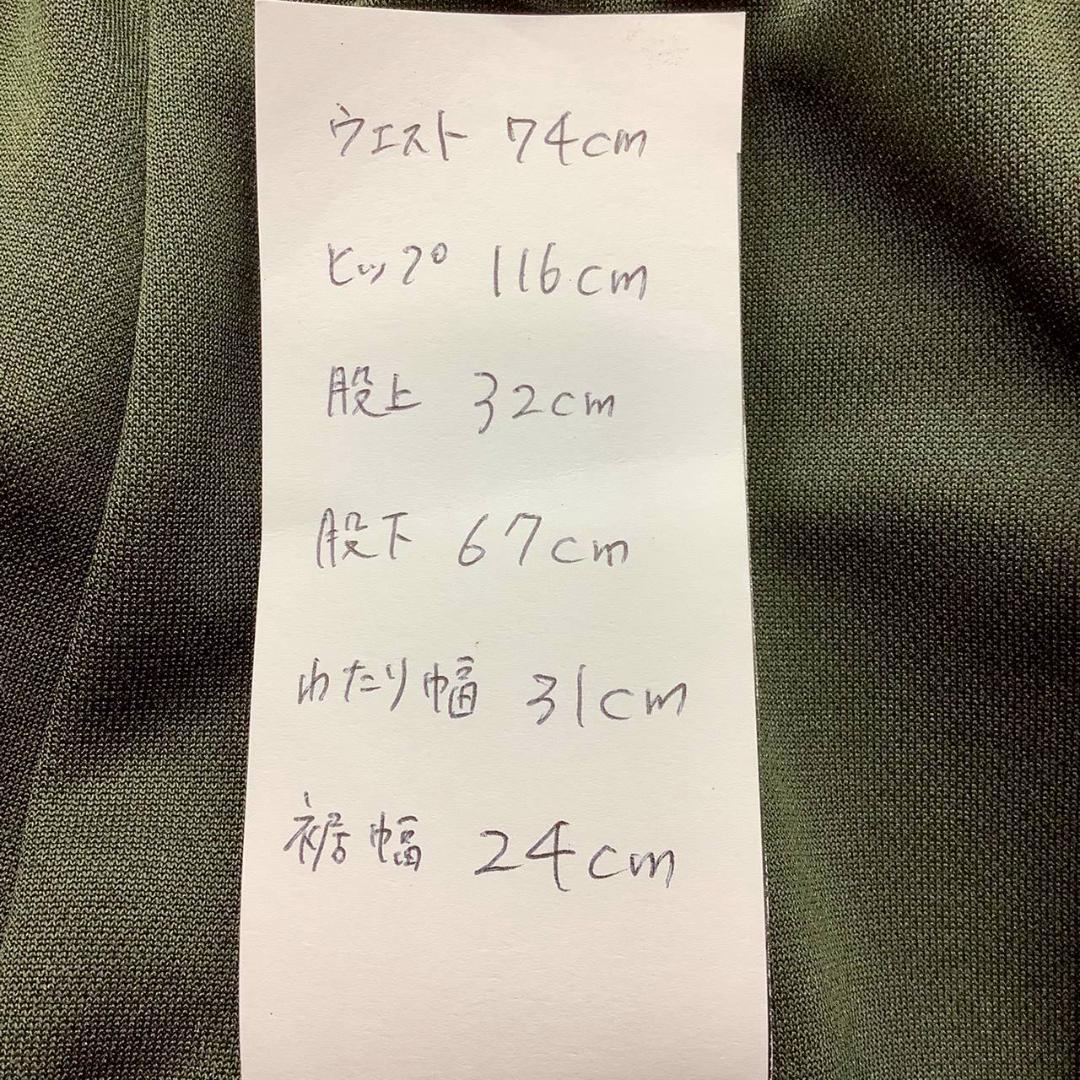 ウエスト 74cm
ヒップ 116cm
股上 32cm
股下 67cm
わたり幅 31cm
裾幅 24cm